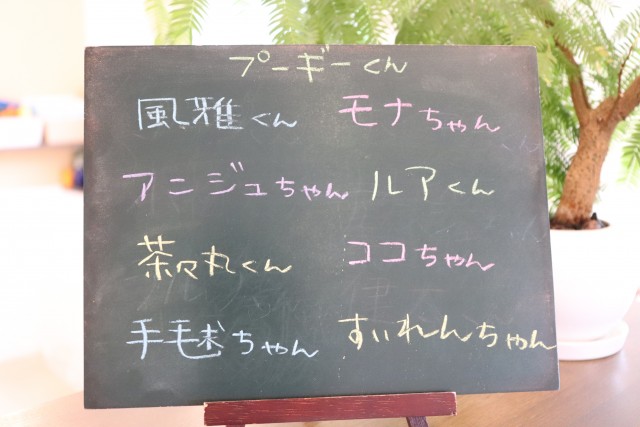 プーギーくん
風雅くん モナちゃん
アンジュちゃん ルアくん
茶々丸くん ココちゃん
手毬ちゃん すいれんちゃん